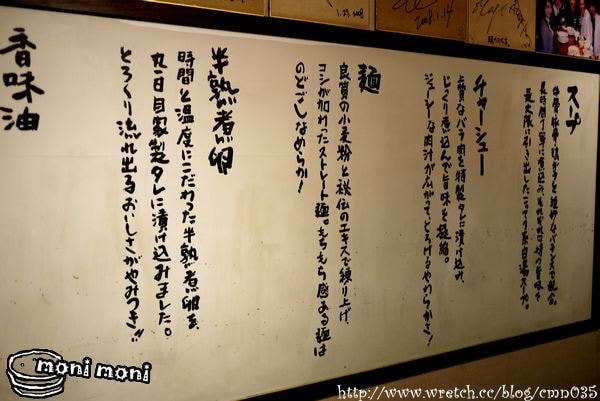 スープ
長時間丁寧に煮込み、それぞれの持つ旨味を
最大限に引き出したこってり系白湯スープ。
チャーシュー
上質なバラ肉を特製ダレに漬け込み、
じっくり煮込んで旨味を凝縮。
ジューシーな肉汁が広がって、とろけるやわらかさ!
麺
良質の小麦粉と秘伝のエキスで練り上げ、
コシが加わったストレート麺。もちもち感ある麺は
のどごしなめらか!
半熟煮卵
時間と温度にこだわった半熟煮卵を、
丸一日自家製タレに漬け込みました。
とろ〜り流れ出るおいしさがやみつき!!
香味油
1.27.2008
2008.1.14
moni moni
http://www.wretch.cc/blog/cmn035